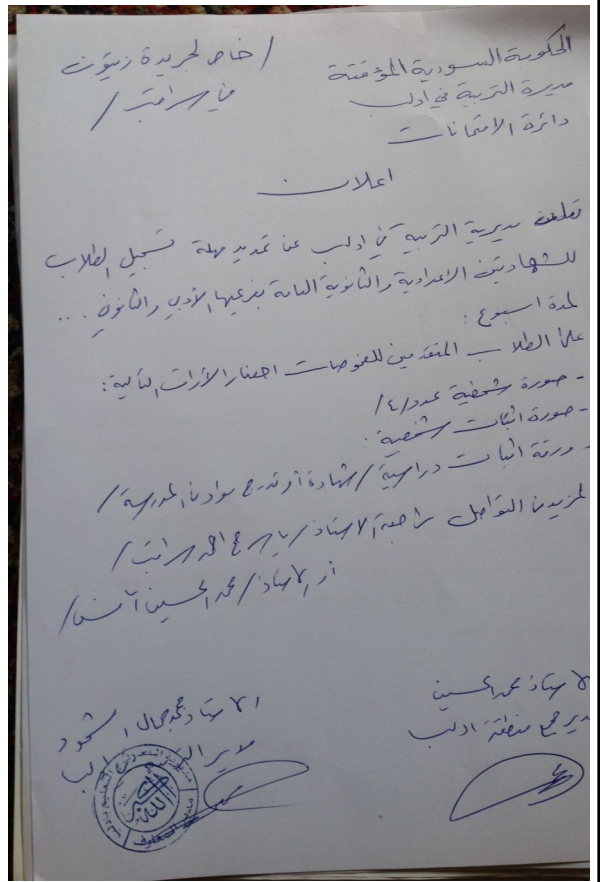 الحكومة السورية المؤقتة
مديرة التربية في ادلب
دائرة الامتحانات
/ خاص لجريدة زيتون
في سراقب /
اعلان
تعلن مديرية التربية في ادلب عن تمديد مهلة تسجيل الطلاب
للشهادتين الاعدادية والثانوية العامة بفرعيها الأدبي والثانوي ...
لمدة اسبوع :
على الطلاب المتقدمين للفحوصات احضار الأوراق التالية :
- صورة شخصية عدد /٤/
- صورة اثبات شخصية .
- ورقة اثبات دراسية / شهادة أو تدرج مواد من المدرسة /
لمزيد من التواصل مراجعة الاستاذ / سراقب /
أو الاستاذ / محمد الحسين /
الاستاذ محمد الحسين
مدير مجمع منطقة ادلب
الاستاذ محمد جمال الشحود
مدير التربية ادلب